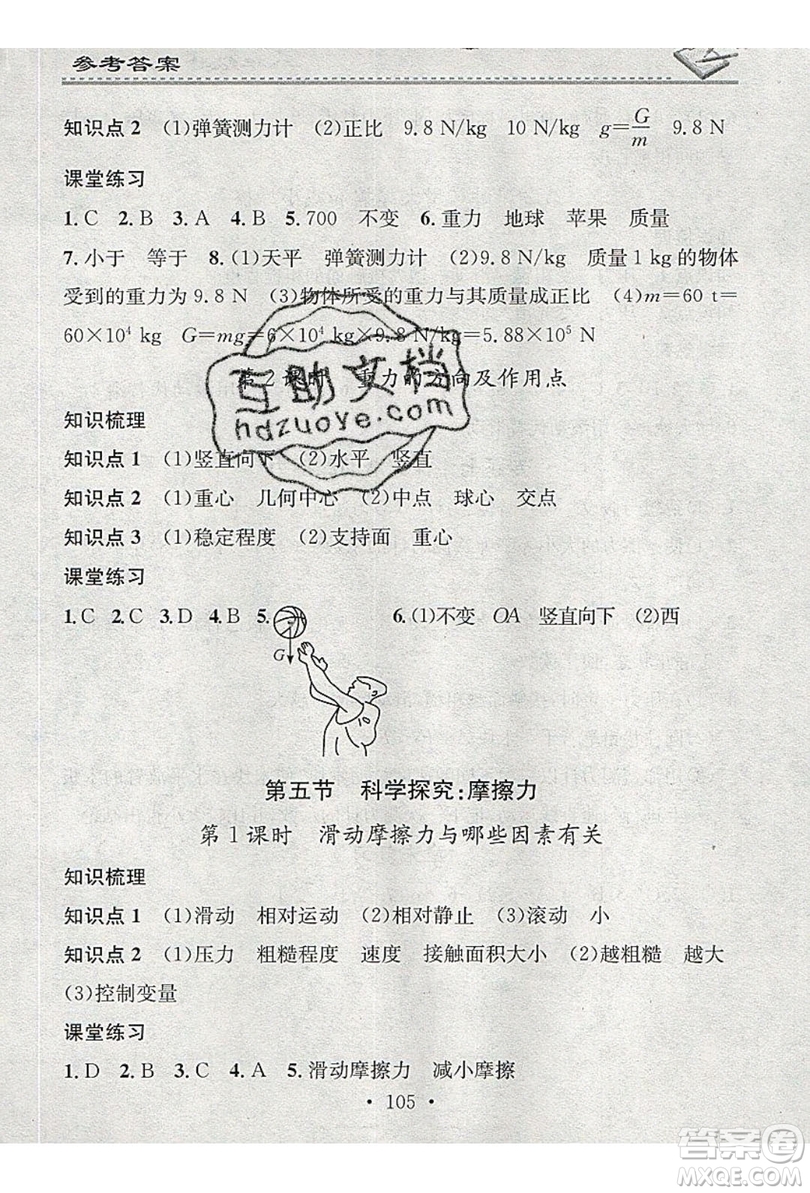 参考答案
知识点 2　(1)弹簧测力计　(2)正比　9.8 N/kg　10 N/kg　g=G/m　9.8 N
课堂练习
1.C　2.B　3.A　4.B　5.700　不变　6.重力　地球　苹果　质量
7.小于　等于　8.(1)天平　弹簧测力计　(2)9.8 N/kg　质量 1 kg 的物体
受到的重力为 9.8 N　(3)物体所受的重力与其质量成正比　(4)m=60 t=
60×10⁴ kg　G=mg=6×10⁴ kg×9.8 N/kg=5.88×10⁵ N
第 2 课时　重力的方向及作用点
互助文档
hdzuoye.com
知识梳理
知识点 1　(1)竖直向下　(2)水平　竖直
知识点 2　(1)重心　几何中心　(2)中点　球心　交点
知识点 3　(1)稳定程度　(2)支持面　重心
课堂练习
1.C　2.C　3.D　4.B　5.　6.(1)不变　OA　竖直向下　(2)西
G
第五节　科学探究:摩擦力
第 1 课时　滑动摩擦力与哪些因素有关
知识梳理
知识点 1　(1)滑动　相对运动　(2)相对静止　(3)滚动　小
知识点 2　(1)压力　粗糙程度　速度　接触面积大小　(2)越粗糙　越大
(3)控制变量
课堂练习
1.D　2.B　3.C　4.A　5.滑动摩擦力　减小摩擦
· 105 ·
答案圈
MXQE.COM